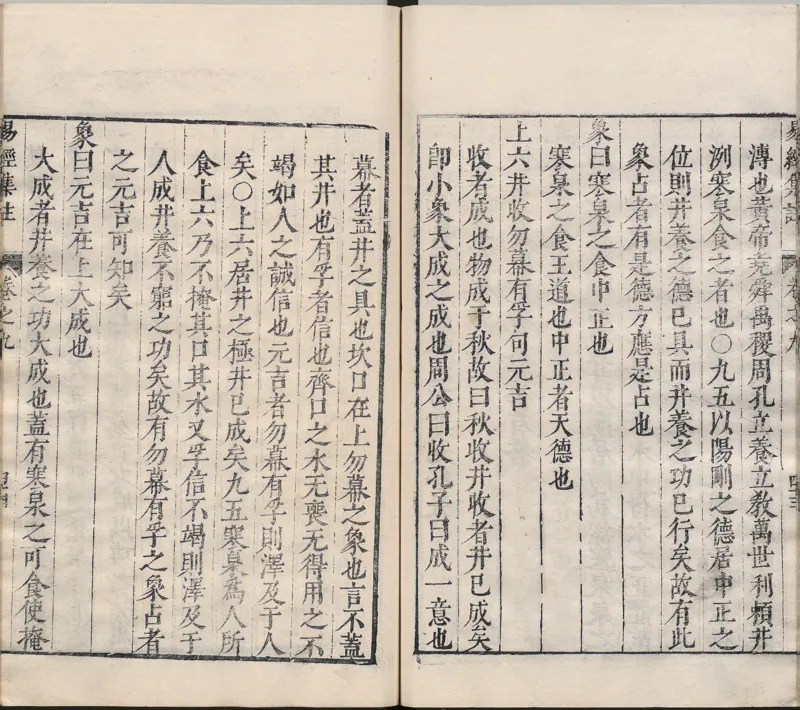 漙也黃帝堯舜禹稷周孔立養立教萬世利賴井
洌寒泉食之者也〇九五以陽剛之德居中正之
位則井養之德已具而井養之功已行矣故有此
象占者有是德方應是占也
象曰寒泉之食中正也
寒泉之食王道也中正者天德也
上六井收勿幕有孚可元吉
收者成也物成于秋故曰秋收井收者井已成矣
卽小象大成之成也周公曰收孔子曰成一意也
幕者蓋井之具也坎口在上勿幕之象也言不蓋
其井也有孚者信也齊口之水无喪无得用之不
竭如人之誠信也元吉者勿幕有孚則澤及于人
矣〇上六居井之極井已成矣九五寒泉爲人所
食上六乃不掩其口其水又孚信不竭則澤及于
人成井養不窮之功矣故有勿幕有孚之象占者
之元吉可知矣
象曰元吉在上大成也
大成者井養之功大成也蓋有寒泉之可食使掩
易經集註 卷之九